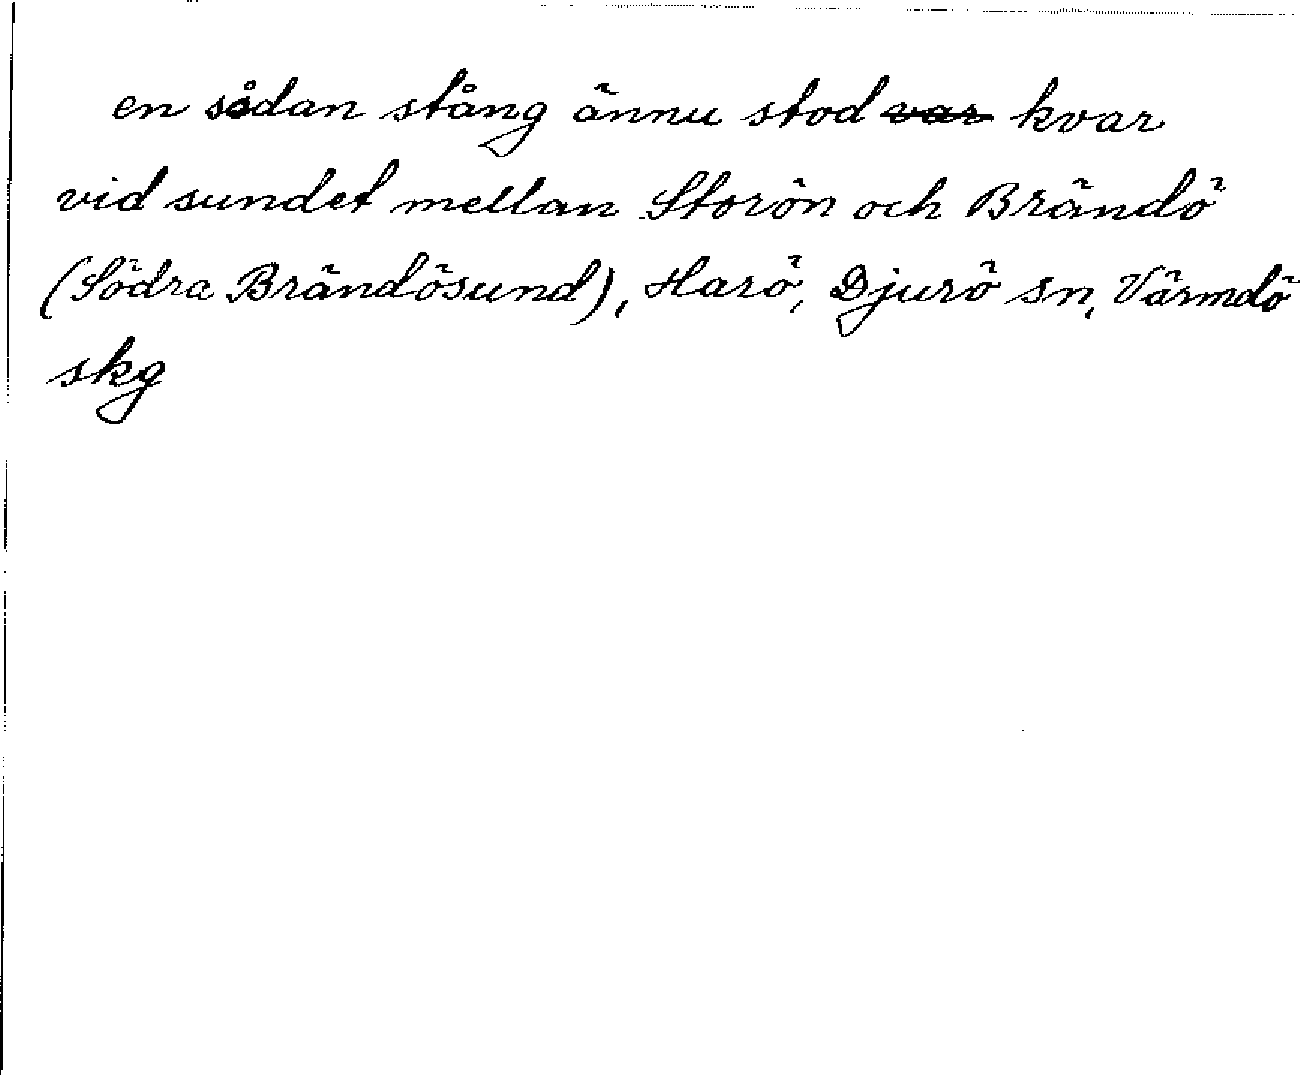 en sådan stång ännu stod var kvar
vid sundet mellan Storön och Brändö
(Södra Brändösund), Harö, Djurö sn, Värmdö
skg